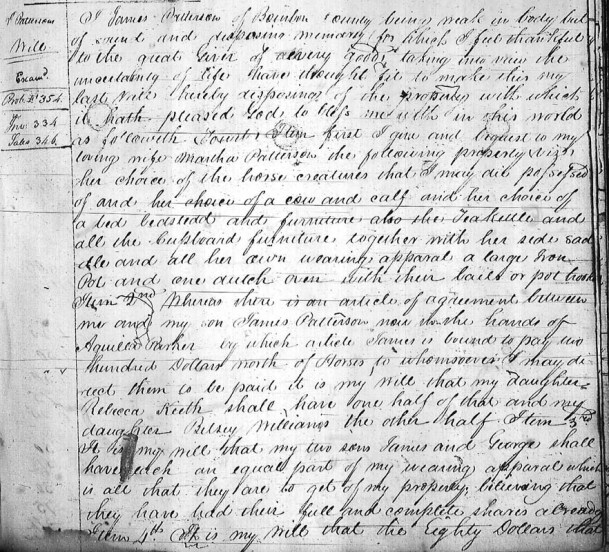 Js Patterson
Will
Exam.d
Prob. Bd 354.
Inv. 334
Sales 346.
I James Patterson of Bourbon County being weak in body but
of sound and disposing memory for which I feel thankful
to the great Giver of every good, taking into view the
uncertainty of life have thought fit to make this my
last Will hereby disposing of the property with which
it hath pleased God to bless me with in this world
as followeth Item first I give and bequest to my
loving wife Martha Patterson the following property Viz
her choice of the horse creatures that I may die possessed
of and her choice of a cow and calf and her choice of
a bed bedstead and furniture also the Teakettle and
all the Cupboard furniture together with her side sad
dle and all her own wearing apparal a large Iron
Pot and one dutch oven with their bails or pot hooks
Item 2nd Whereas there is an article of agreement between
me and my son James Patterson now in the hands of
Aquilla Parker by which article James is bound to pay two
hundred Dollars worth of Horses to whomsoever I may di
rect them to be paid it is my will that my daughter
Rebecca Keith shall have one half of that and my
daughter Betsey Williams the other half Item 3rd
It is my will that my two sons James and George shall
have each an equal part of my wearing apparal which
is all that they are to get of my property, believing that
they have had their full and complete shares already
Item 4th It is my will that the Eighty Dollars that